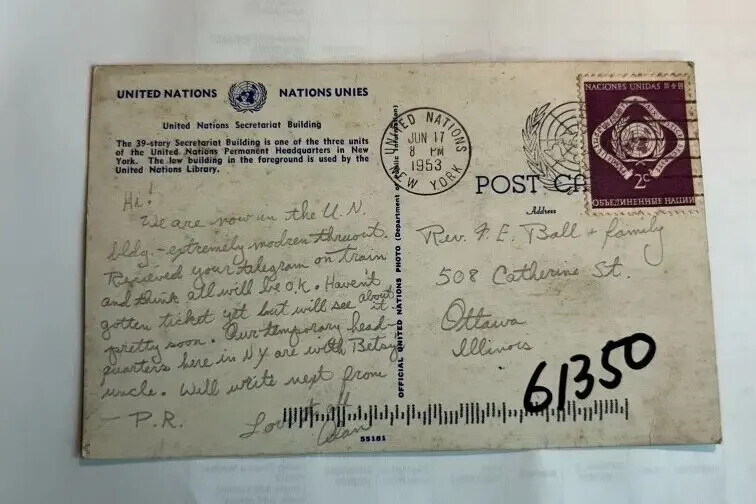 UNITED NATIONS NATIONS UNIES
United Nations Secretariat Building
The 39-story Secretariat Building is one of the three units
of the United Nations Permanent Headquarters in New
York. The low building in the foreground is used by the
United Nations Library.
Hi!
We are now in the U.N.
bldg. - extremely modren thruout.
Recieved your telegram on train
and think all will be O.K. Haven't
gotten ticket yet but will see about it
pretty soon. Our temporary head-
quarters here in NY are with Betsy
uncle. Will write next from
- P.R.
Love to all
Alan
OFFICIAL UNITED NATIONS PHOTO (Department of Public Information)
55181
UNITED NATIONS
JUN 17
8 PM
1953
NEW YORK
NACIONES UNIDAS
2c
ОБЪЕДИНЕННЫЕ НАЦИИ
POST CA
Address
Rev. F. E. Ball + family
508 Catherine St.
Ottawa
Illinois
61350